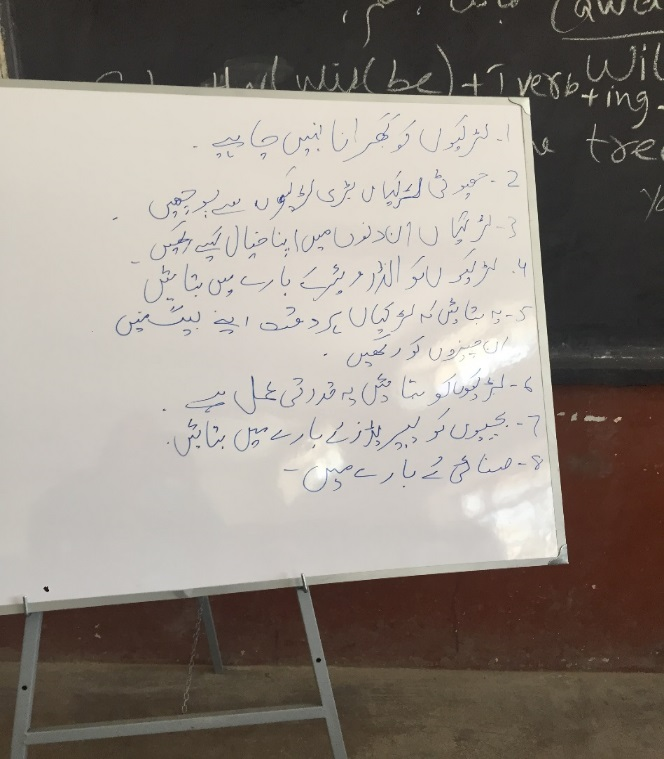 (awa
Will
will(be)+I verb+ing-
the tree
1- لڑکیوں کو گھبرانا نہیں چاہیے -
2- چھوٹی لڑکیاں بڑی لڑکیوں سے پوچھیں -
3- لڑکیاں ان دنوں میں اپنا خیال کیسے رکھیں -
4- لڑکیوں کو انڈرویئر کے بارے میں بتائیں
5- یہ بتائیں کہ لڑکیاں ہر وقت اپنے بیگ میں
ان چیزوں کو رکھیں -
6- لڑکیوں کو بتائیں یہ قدرتی عمل ہے -
7- بچیوں کو پیریڈز کے بارے میں بتائیں -
8- صفائی کے بارے میں -